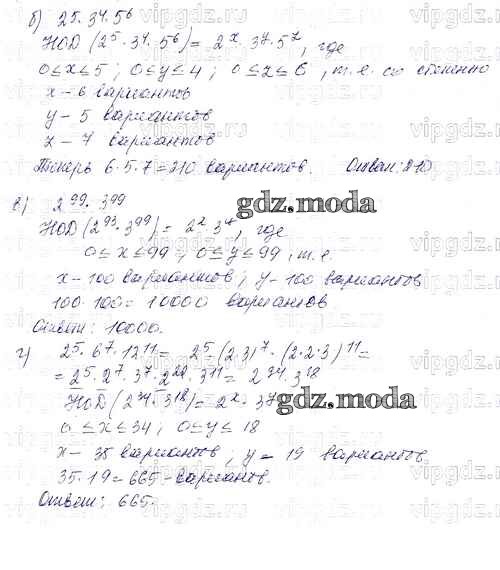 б) 2⁵·3⁴·5⁶
НОД (2⁵·3⁴·5⁶) = 2ˣ·3ʸ·5ᶻ, где
0≤x≤5 ; 0≤y≤4 ; 0≤z≤6 , т.е. со степенью
x – 6 вариантов
y – 5 вариантов
z – 7 вариантов
Теперь 6·5·7=210 вариантов. Ответ: 210
в) 2⁹⁹·3⁹⁹
НОД (2⁹³·3⁹⁹) = 2ˣ·3ʸ, где
0≤x≤99 , 0≤y≤99 , т.е.
x – 100 вариантов ; y – 100 вариантов
100·100 = 10000 вариантов
Ответ: 10000.
г) 2⁵·6⁷·12¹¹ = 2⁵·(2·3)⁷·(2·2·3)¹¹ =
= 2⁵·2⁷·3⁷·2²²·3¹¹ = 2³⁴·3¹⁸
НОД (2³⁴·3¹⁸) = 2ˣ·3ʸ
0≤x≤34 ; 0≤y≤18
x – 35 вариантов , y = 19 вариантов
35·19 = 665 – вариантов.
Ответ: 665.
gdz.moda
gdz.moda
vipgdz.ru